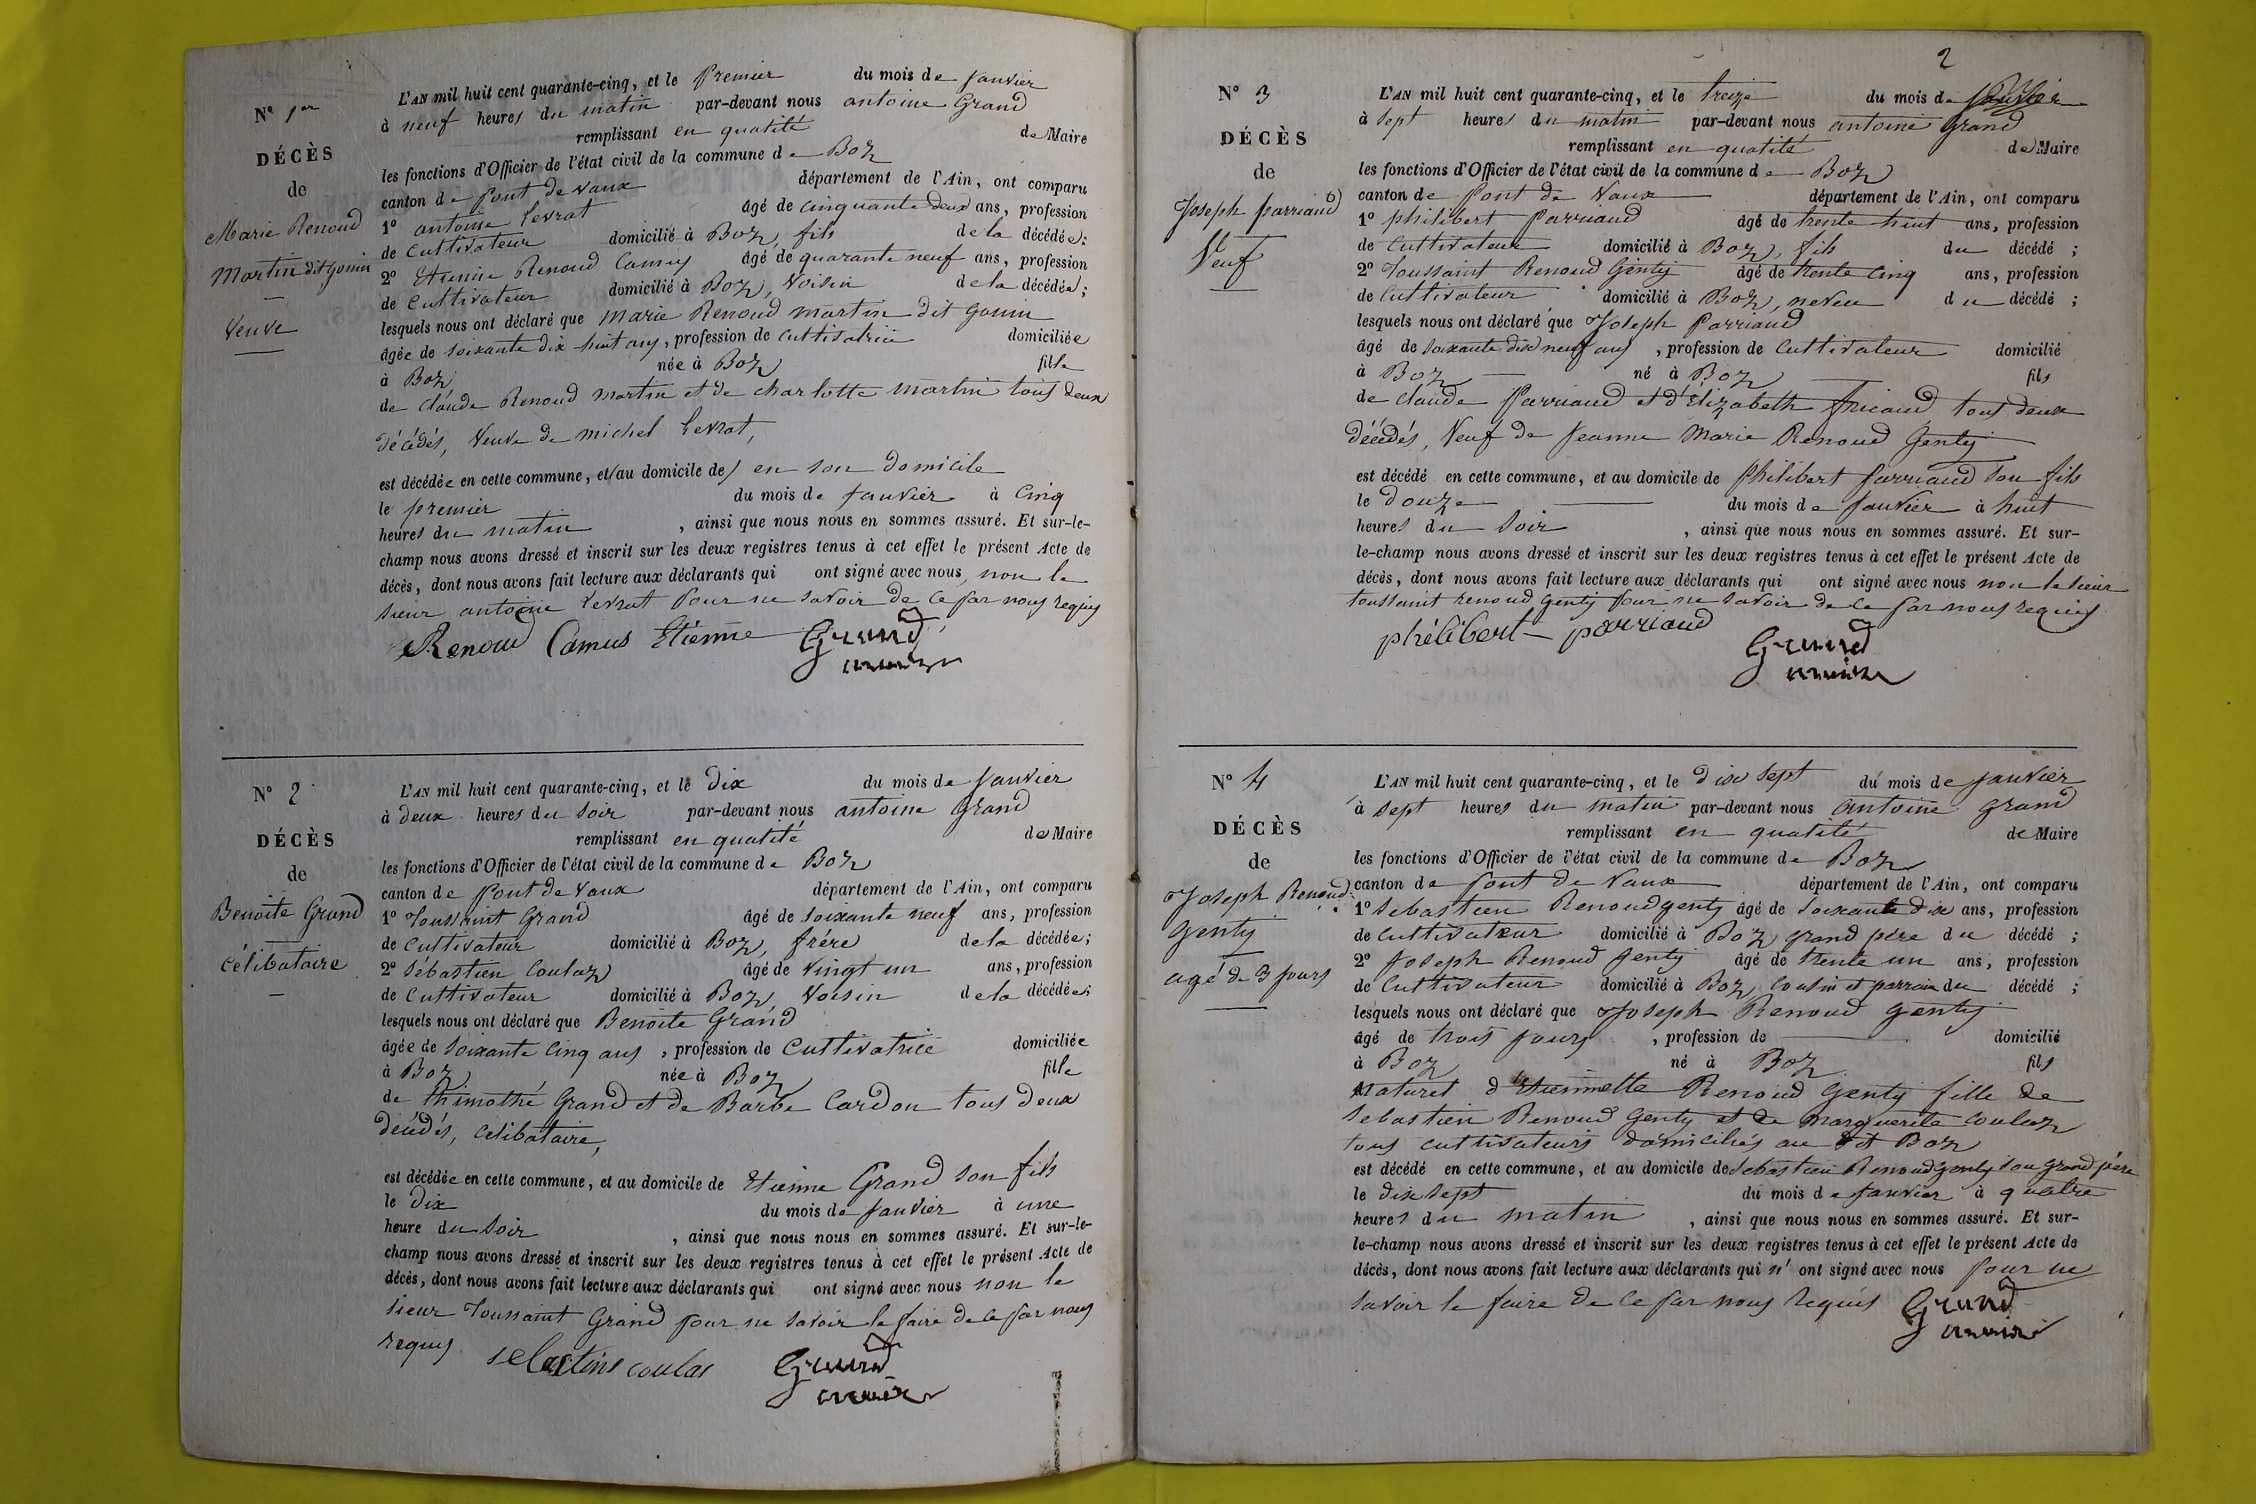 N° 1er
DÉCÈS
de
Marie Renoud
Martin dit gonin
Veuve
L'AN mil huit cent quarante-cinq, et le premier du mois de janvier
à neuf heures du matin par-devant nous antoine Grand
remplissant en qualité de Maire
les fonctions d'Officier de l'état civil de la commune de Boz
canton de pont de vaux département de l'Ain, ont comparu
1° antoine Levrat âgé de cinquante deux ans, profession
de Cultivateur domicilié à Boz, fils de la décédée;
2° Etienne Renoud Camus âgé de quarante neuf ans, profession
de Cultivateur domicilié à Boz, Voisin de la décédée;
lesquels nous ont déclaré que Marie Renoud martin dit gonin
âgée de soixante dix huit ans, profession de cultivatrice domiciliée
à Boz née à Boz fille
de claude Renoud martin et de charlotte martin tous deux
décédés, Veuve de michel Levrat,
est décédée en cette commune, et (au domicile de) en son domicile
le premier du mois de janvier à Cinq
heures du matin, ainsi que nous nous en sommes assuré. Et sur-le-
champ nous avons dressé et inscrit sur les deux registres tenus à cet effet le présent Acte de
décès, dont nous avons fait lecture aux déclarants qui ont signé avec nous, non le
sieur antoine Levrat pour ne savoir de ce par nous requis
Renoud Camus Etienne Grand
maire
N° 2
DÉCÈS
de
Benoite Grand
célibataire
L'AN mil huit cent quarante-cinq, et le dix du mois de janvier
à deux heures du soir par-devant nous antoine Grand
remplissant en qualité de Maire
les fonctions d'Officier de l'état civil de la commune de Boz
canton de pont de vaux département de l'Ain, ont comparu
1° Toussaint Grand âgé de soixante neuf ans, profession
de cultivateur domicilié à Boz, frére de la décédée;
2° Sébastien Coulaz âgé de vingt un ans, profession
de cultivateur domicilié à Boz, Voisin de la décédée;
lesquels nous ont déclaré que Benoite Grand
âgée de soixante cinq ans, profession de Cultivatrice domiciliée
à Boz née à Boz fille
de thimothé Grand et de Barbe Cardon tous deux
décédés, celibataire,
est décédée en cette commune, et au domicile de Etienne Grand son fils
le dix du mois de janvier à une
heure du soir, ainsi que nous nous en sommes assuré. Et sur-le-
champ nous avons dressé et inscrit sur les deux registres tenus à cet effet le présent Acte de
décès, dont nous avons fait lecture aux déclarants qui ont signé avec nous non le
sieur Toussaint Grand pour ne savoir le faire de ce par nous
requis
coulas Grand
maire
2
N° 3
DÉCÈS
de
Joseph parriaud
Veuf
L'AN mil huit cent quarante-cinq, et le treize du mois de janvier
à sept heures du matin par-devant nous antoine grand
remplissant en qualité de Maire
les fonctions d'Officier de l'état civil de la commune de Boz
canton de pont de Vaux département de l'Ain, ont comparu
1° philibert parriaud âgé de trente huit ans, profession
de cultivateur domicilié à Boz, fils du décédé;
2° Toussaint Renoud Genty âgé de trente cinq ans, profession
de Cultivateur domicilié à Boz, neveu du décédé;
lesquels nous ont déclaré que Joseph parriaud
âgé de soixante dix neuf ans, profession de cultivateur domicilié
à Boz né à Boz fils
de claude parriaud et d'Élizabeth fricaud tous deux
décédés, Veuf de Jeanne Marie Renoud Genty
est décédé en cette commune, et au domicile de philibert parriaud son fils
le douze du mois de janvier à huit
heures du soir, ainsi que nous nous en sommes assuré. Et sur-
le-champ nous avons dressé et inscrit sur les deux registres tenus à cet effet le présent Acte de
décès, dont nous avons fait lecture aux déclarants qui ont signé avec nous non le sieur
toussaint renoud genty pour ne savoir de ce par nous requis
phélibert parriaud Grand
maire
N° 4
DÉCÈS
de
Joseph Renoud
Genty
agé de 3 jours
L'AN mil huit cent quarante-cinq, et le dix sept du mois de janvier
à sept heures du matin par-devant nous antoine grand
remplissant en qualité de Maire
les fonctions d'Officier de l'état civil de la commune de Boz
canton de pont de Vaux département de l'Ain, ont comparu
1° Sebastien Renoud genty âgé de soixante dix ans, profession
de cultivateur domicilié à Boz grand pére du décédé;
2° Joseph Renoud genty âgé de trente un ans, profession
de Cultivateur domicilié à Boz, cousin et parrain du décédé;
lesquels nous ont déclaré que Joseph Renoud genty
âgé de trois jours, profession de domicilié
à Boz né à Boz fils
naturel d'Etiennette Renoud Genty fille de
sebastien Renoud Genty et de marguerite coulaz
tous cultivateurs domiciliés au dit Boz
est décédé en cette commune, et au domicile de Sebastien Renoud genty son grand pére
le dix sept du mois de janvier à quatre
heures du matin, ainsi que nous nous en sommes assuré. Et sur-
le-champ nous avons dressé et inscrit sur les deux registres tenus à cet effet le présent Acte de
décès, dont nous avons fait lecture aux déclarants qui n'ont signé avec nous pour ne
savoir le faire de ce par nous requis Grand
maire